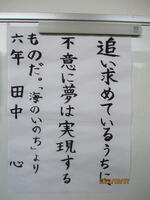 追い求めているうちに、
不意に夢は実現する
ものだ。「海のいのち」より
六年 田中 心